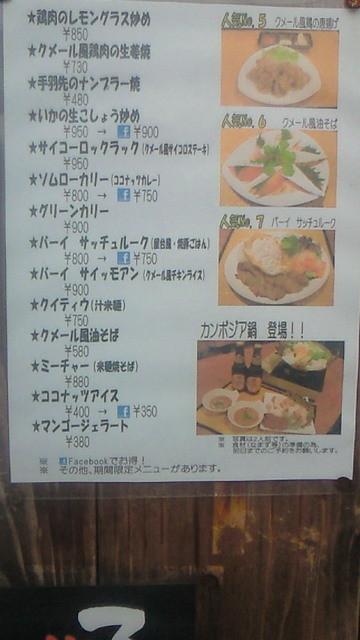 ★鶏肉のレモングラス炒め
¥850
★クメール風鶏肉の生姜焼
¥730
★手羽先のナンプラー焼
¥480
★いかの生こしょう炒め
¥950 → f ¥900
★サイコーロックラック(クメール風サイコロステーキ)
¥950
★ソムローカリー(ココナッツカレー)
¥800 → f ¥750
★グリーンカリー
¥900
★バーイ サッチュルーク(屋台風・焼豚ごはん)
¥800 → f ¥750
★バーイ サイッモアン(クメール風チキンライス)
¥900
★クイティウ(汁米麺)
¥750
★クメール風油そば
¥580
★ミーチャー(米麺焼そば)
¥880
★ココナッツアイス
¥400 → f ¥350
★マンゴージェラート
¥380
※ f Facebookでお得!
※ その他、期間限定メニューがあります。
人気No.5 クメール風鶏の唐揚げ
人気No.6 クメール風油そば
人気No.7 バーイ サッチュルーク
カンボジア鍋 登場!!
※ 写真は2人前です。
※ 食材(なまず等)の準備の為、
前日までのご予約をお願いします。